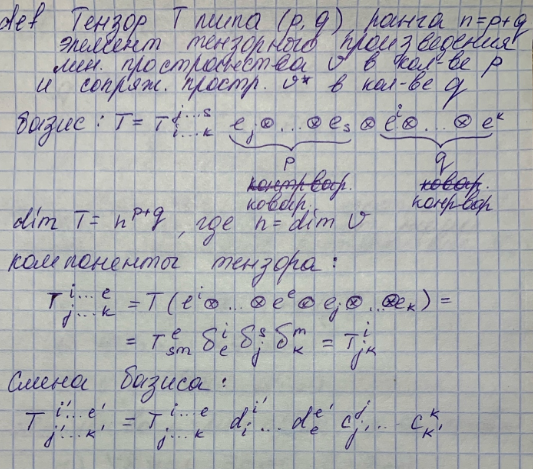 def Тензор T типа (p, q) ранга n=p+q
элемент тензорного произведения
лин. пространства V в кол-ве p
и сопряж. простр. V* в кол-ве q
базис: T = T^{j...s}_{i...k} e_j ⊗ ... ⊗ e_s ⊗ e^i ⊗ ... ⊗ e^k
p q
контрвар. ковар.
ковар. конрвар
dim T = n^{p+q}, где n = dim V
компоненты тензора:
T^{i...e}_{j...k} = T(e^i ⊗ ... ⊗ e^e ⊗ e_j ⊗ ... ⊗ e_k) =
= T^e_{sm} δ^i_e δ^s_j δ^m_k = T^i_{jk}
Смена базиса:
T^{i'...e'}_{j'...k'} = T^{i...e}_{j...k} d^{i'}_i ... d^{e'}_e c^j_{j'} ... c^k_{k'}